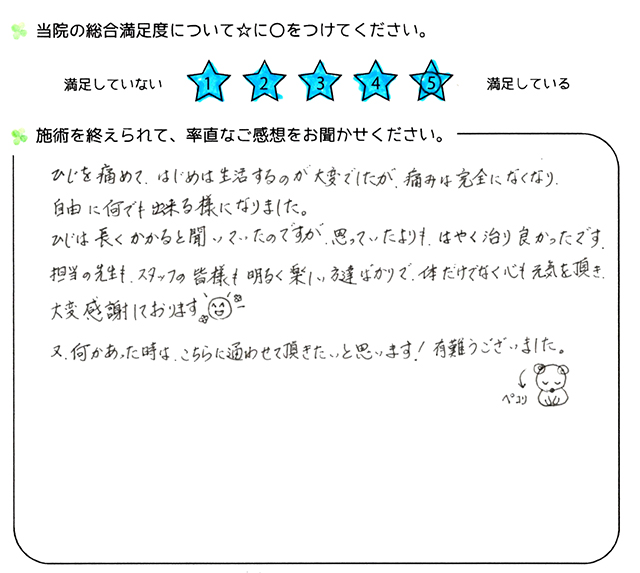 当院の総合満足度について☆に〇をつけてください。
満足していない 1 2 3 4 5 満足している
施術を終えられて、率直なご感想をお聞かせください。
ひじを痛めて、はじめは生活するのが大変でしたが、痛みは完全になくなり、
自由に何でも出来る様になりました。
ひじは長くかかると聞いていたのですが、思っていたよりも、はやく治り良かったです。
担当の先生も、スタッフの皆様も明るく楽しい方達ばかりで、体だけでなく心も元気を頂き、
大変感謝しております
又、何かあった時は、こちらに通わせて頂きたいと思います！有難うございました。
ペコリ